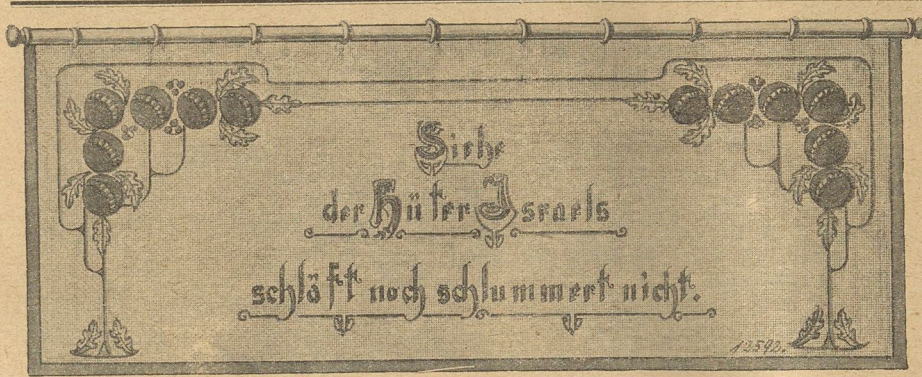 Siehe
der Hüter Israels
schläft noch schlummert nicht.
12592.